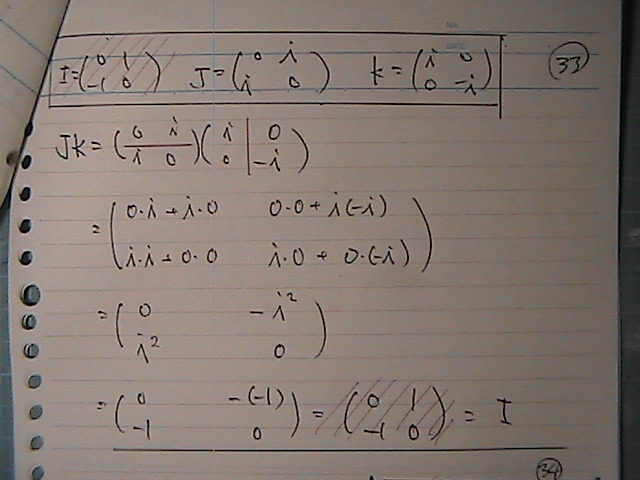 No.
DATE
I = ( 0 1 / -1 0 ) J = ( 0 i / i 0 ) K = ( i 0 / 0 -i ) 33
JK = ( 0 i / i 0 ) ( i 0 / 0 -i )
= ( 0·i + i·0 0·0 + i(-i)
i·i + 0·0 i·0 + 0·(-i) )
= ( 0 -i²
i² 0 )
= ( 0 -(-1) / -1 0 ) = ( 0 1 / -1 0 ) = I
34